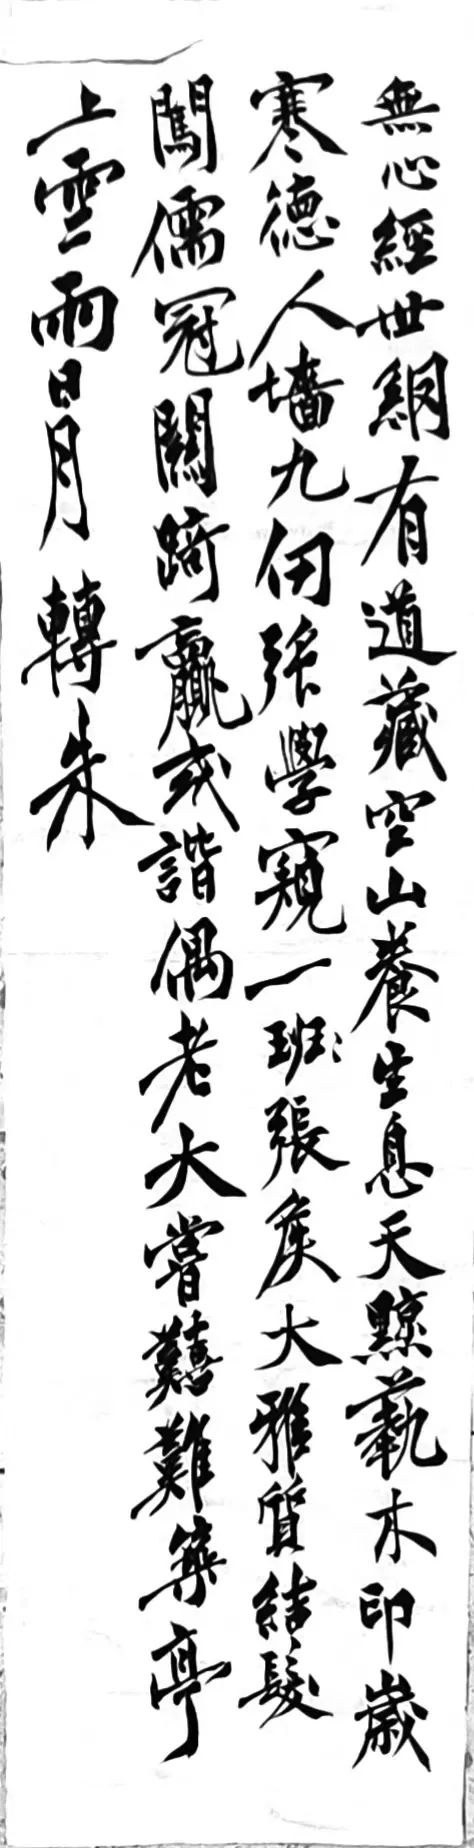 無心經世網有道藏空山養生息天黥蓺木印歲
寒德人墻九仞强學窺一班張矦大雅質結髮
闖儒冠關踦贏或諧偶老大嘗囏難築亭
上雲雨日月轉朱